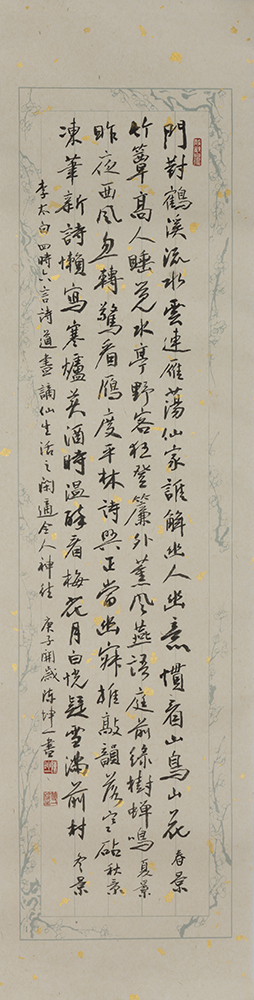 門對鶴溪流水雲連雁蕩仙家誰解幽人幽意慣看山鳥山花 春景
竹簟高人睡覺水亭野客狂登簾外薰風燕語庭前綠樹蟬鳴 夏景
昨夜西風忽轉驚看雁度平林詩興正當幽寂推敲韻落寒砧 秋景
凍筆新詩懶寫寒爐美酒時溫醉看梅花月白恍疑雪滿前村 冬景
李太白四時六言詩道盡謫仙生活之閑適令人神往 庚子開歲陳坤一書